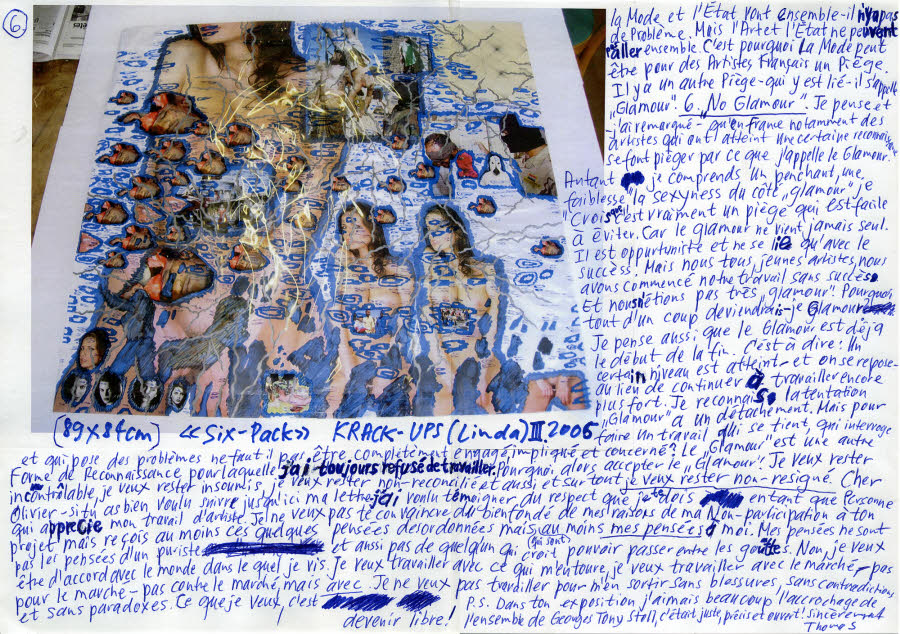 6.
la Mode et l'État vont ensemble - il n'y a pas
de Problème. Mais l'Art et l'État ne peuvent
aller ensemble. C'est pourquoi La Mode peut
être pour des Artistes Français un Piège.
Il y a un autre Piège - qui y est lié - il s'appelle
"Glamour". 6. "No Glamour". Je pense et
j'ai remarqué - qu'en France notamment des
artistes qui ont atteint une certaine reconnais
se font pièger par ce que j'appelle le Glamour.
Autant je comprends un penchant, une
faiblesse "la sexyness du côté "glamour" je
crois que c'est vraiment un piège qui est facile
à éviter. Car le glamour ne vient jamais seul.
Il est oppurtuniste et ne se lie qu'avec le
succèss! Mais nous tous, jeunes artistes, nous
avons commencé notre travail sans succès.
Et nous n'étions pas très "glamour". Pourquoi
tout d'un coup deviendrais-je Glamour
Je pense aussi que le Glamour est déjà
le début de la fin. C'est à dire: Un
certain niveau est atteint - et on se repose -
au lieu de continuer à travailler encore
plus fort. Je reconnais la tentation
"Glamour" à un détachement. Mais pour
faire un travail qui se tient, qui interroge
(89x84cm) «Six-Pack» KRACK-UPS (Linda) III. 2006
et qui pose des problèmes ne faut il pas être complètement engagé impliqué et concerné? Le "Glamour" est une autre
Forme de Reconnaissance pour laquelle j'ai toujours refusé de travailler. Pourquoi alors accepter le "Glamour". Je veux rester
incontrôlable, je veux rester insoumis, je veux rester non-reconcilié et aussi et sur tout je veux rester non-resigné. Cher
Olivier - si tu as bien voulu suivre jusqu'ici ma lettre j'ai voulu témoigner du respect que je te dois en tant que Personne
qui apprecie mon travail d'artiste. Je ne veux pas te convaincre du bienfondé de mes raisons de ma Non-participation à ton
projet mais reçois au moins ces quelques pensées desordonnées mais au moins mes pensées à moi. Mes pensées ne sont
pas les pensées d'un puriste et aussi pas de quelqu'un (qui sont) qui croit pouvoir passer entre les gouttes. Non, je veux
être d'accord avec le monde dans le quel je vis. Je veux travailler avec ce qui m'entoure, je veux travailler avec le marché - pas
pour le marché - pas contre le marché, mais avec. Je ne veux pas travailler pour m'en sortir sans blessures, sans contradictions
et sans paradoxes. Ce que je veux, c'est devenir libre!
P.S. Dans ton exposition j'aimais beaucoup l'accrochage de
l'ensemble de Georges Tony Stoll, c'était juste, précis et ouvert! sincèrement
Thomas